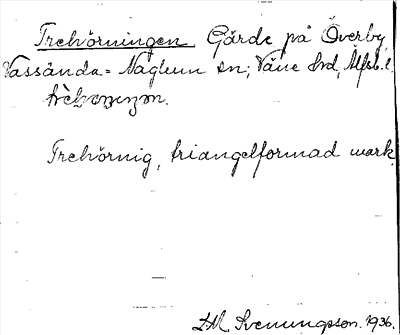 Trehörningen Gärde på Överby,
Vassända-Naglum sn; Väne hrd, Älfsb. l.
Trehörnig, triangelformad mark.
D.M. Svenungsson. 1936.